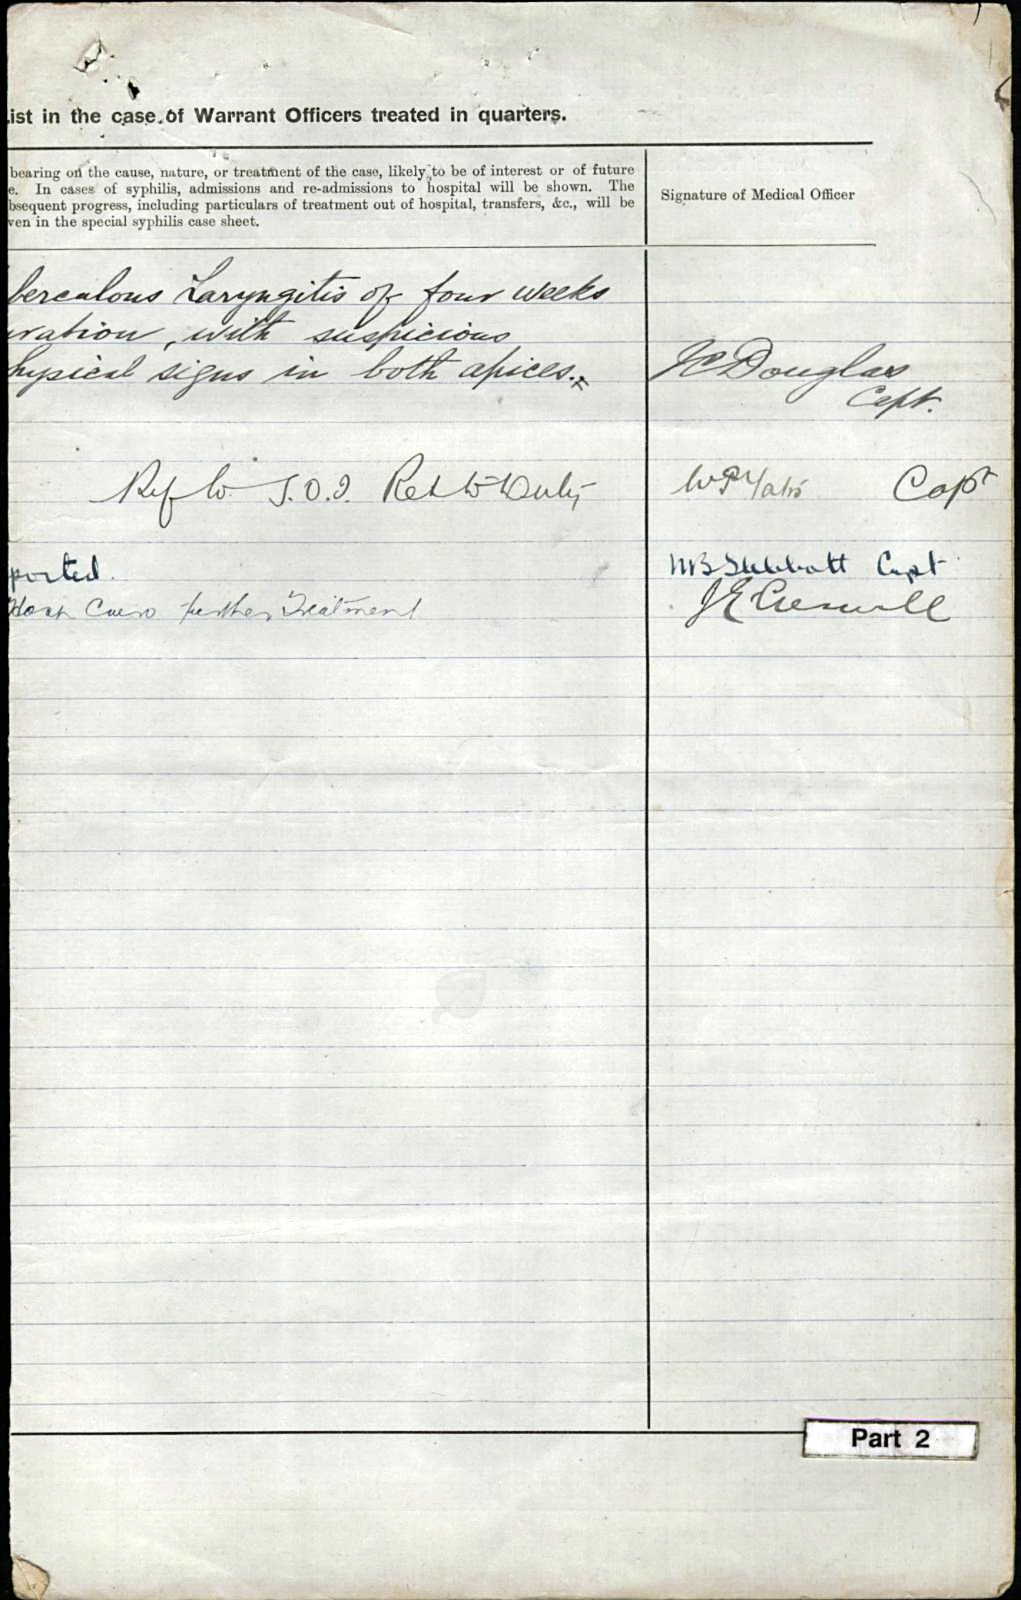 ist in the case of Warrant Officers treated in quarters.
bearing on the cause, nature, or treatment of the case, likely to be of interest or of future
e. In cases of syphilis, admissions and re-admissions to hospital will be shown. The
bsequent progress, including particulars of treatment out of hospital, transfers, &c., will be
ven in the special syphilis case sheet.
Signature of Medical Officer
berculous Laryngitis of four weeks
uration, with suspicious
hysical signs in both apices.
JC Douglas
Capt.
to S.O.I. Ret to Duty
Capt
ported.
Capt
Hosp Cairo further Treatment
Part 2